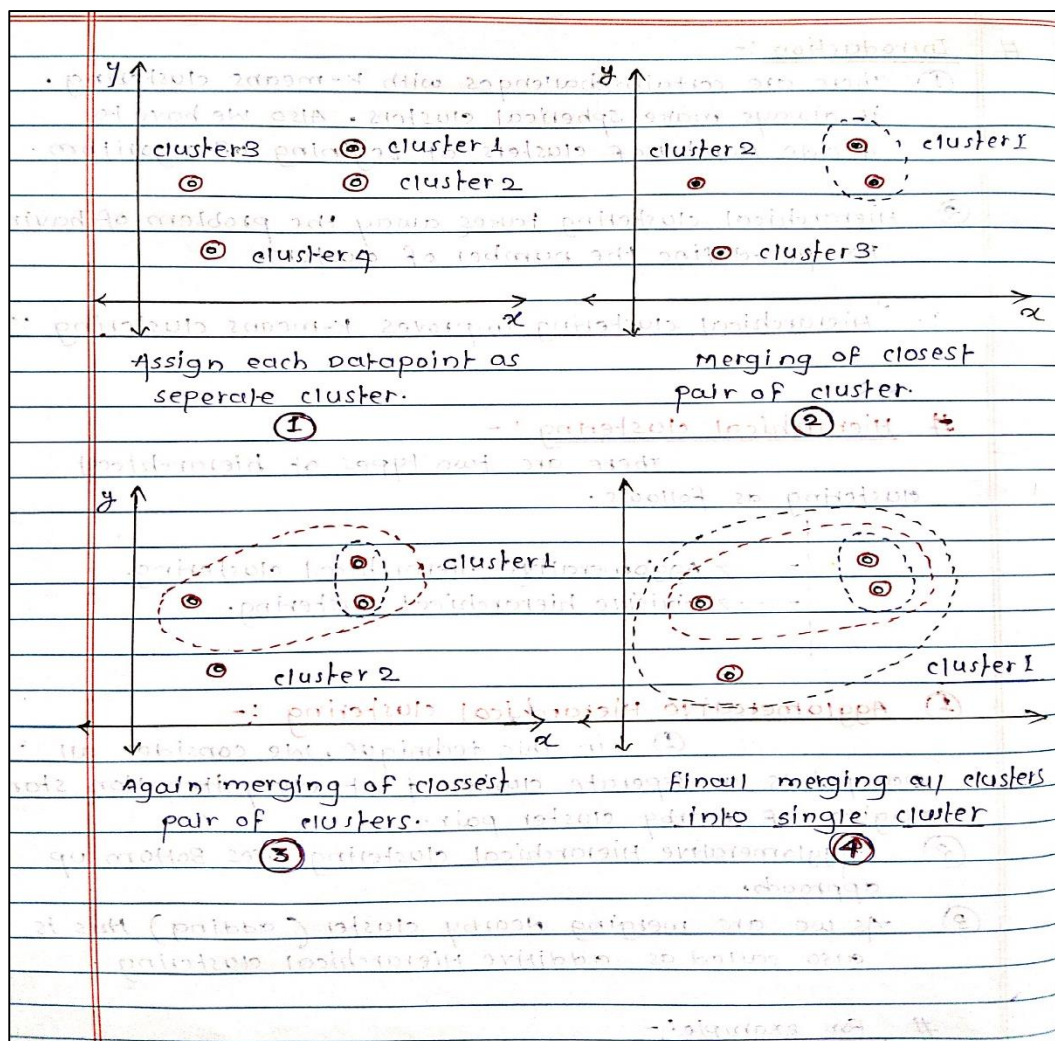 y
cluster3
cluster 1
cluster 2
cluster 4
x
Assign each Datapoint as
seperate cluster.
1
y
cluster 2
cluster I
cluster 3
x
Merging of closest
pair of cluster.
2
y
cluster 1
cluster 2
x
Again merging of clossest
pair of clusters.
3
cluster I
Finall merging all clusters
into single cluster
4